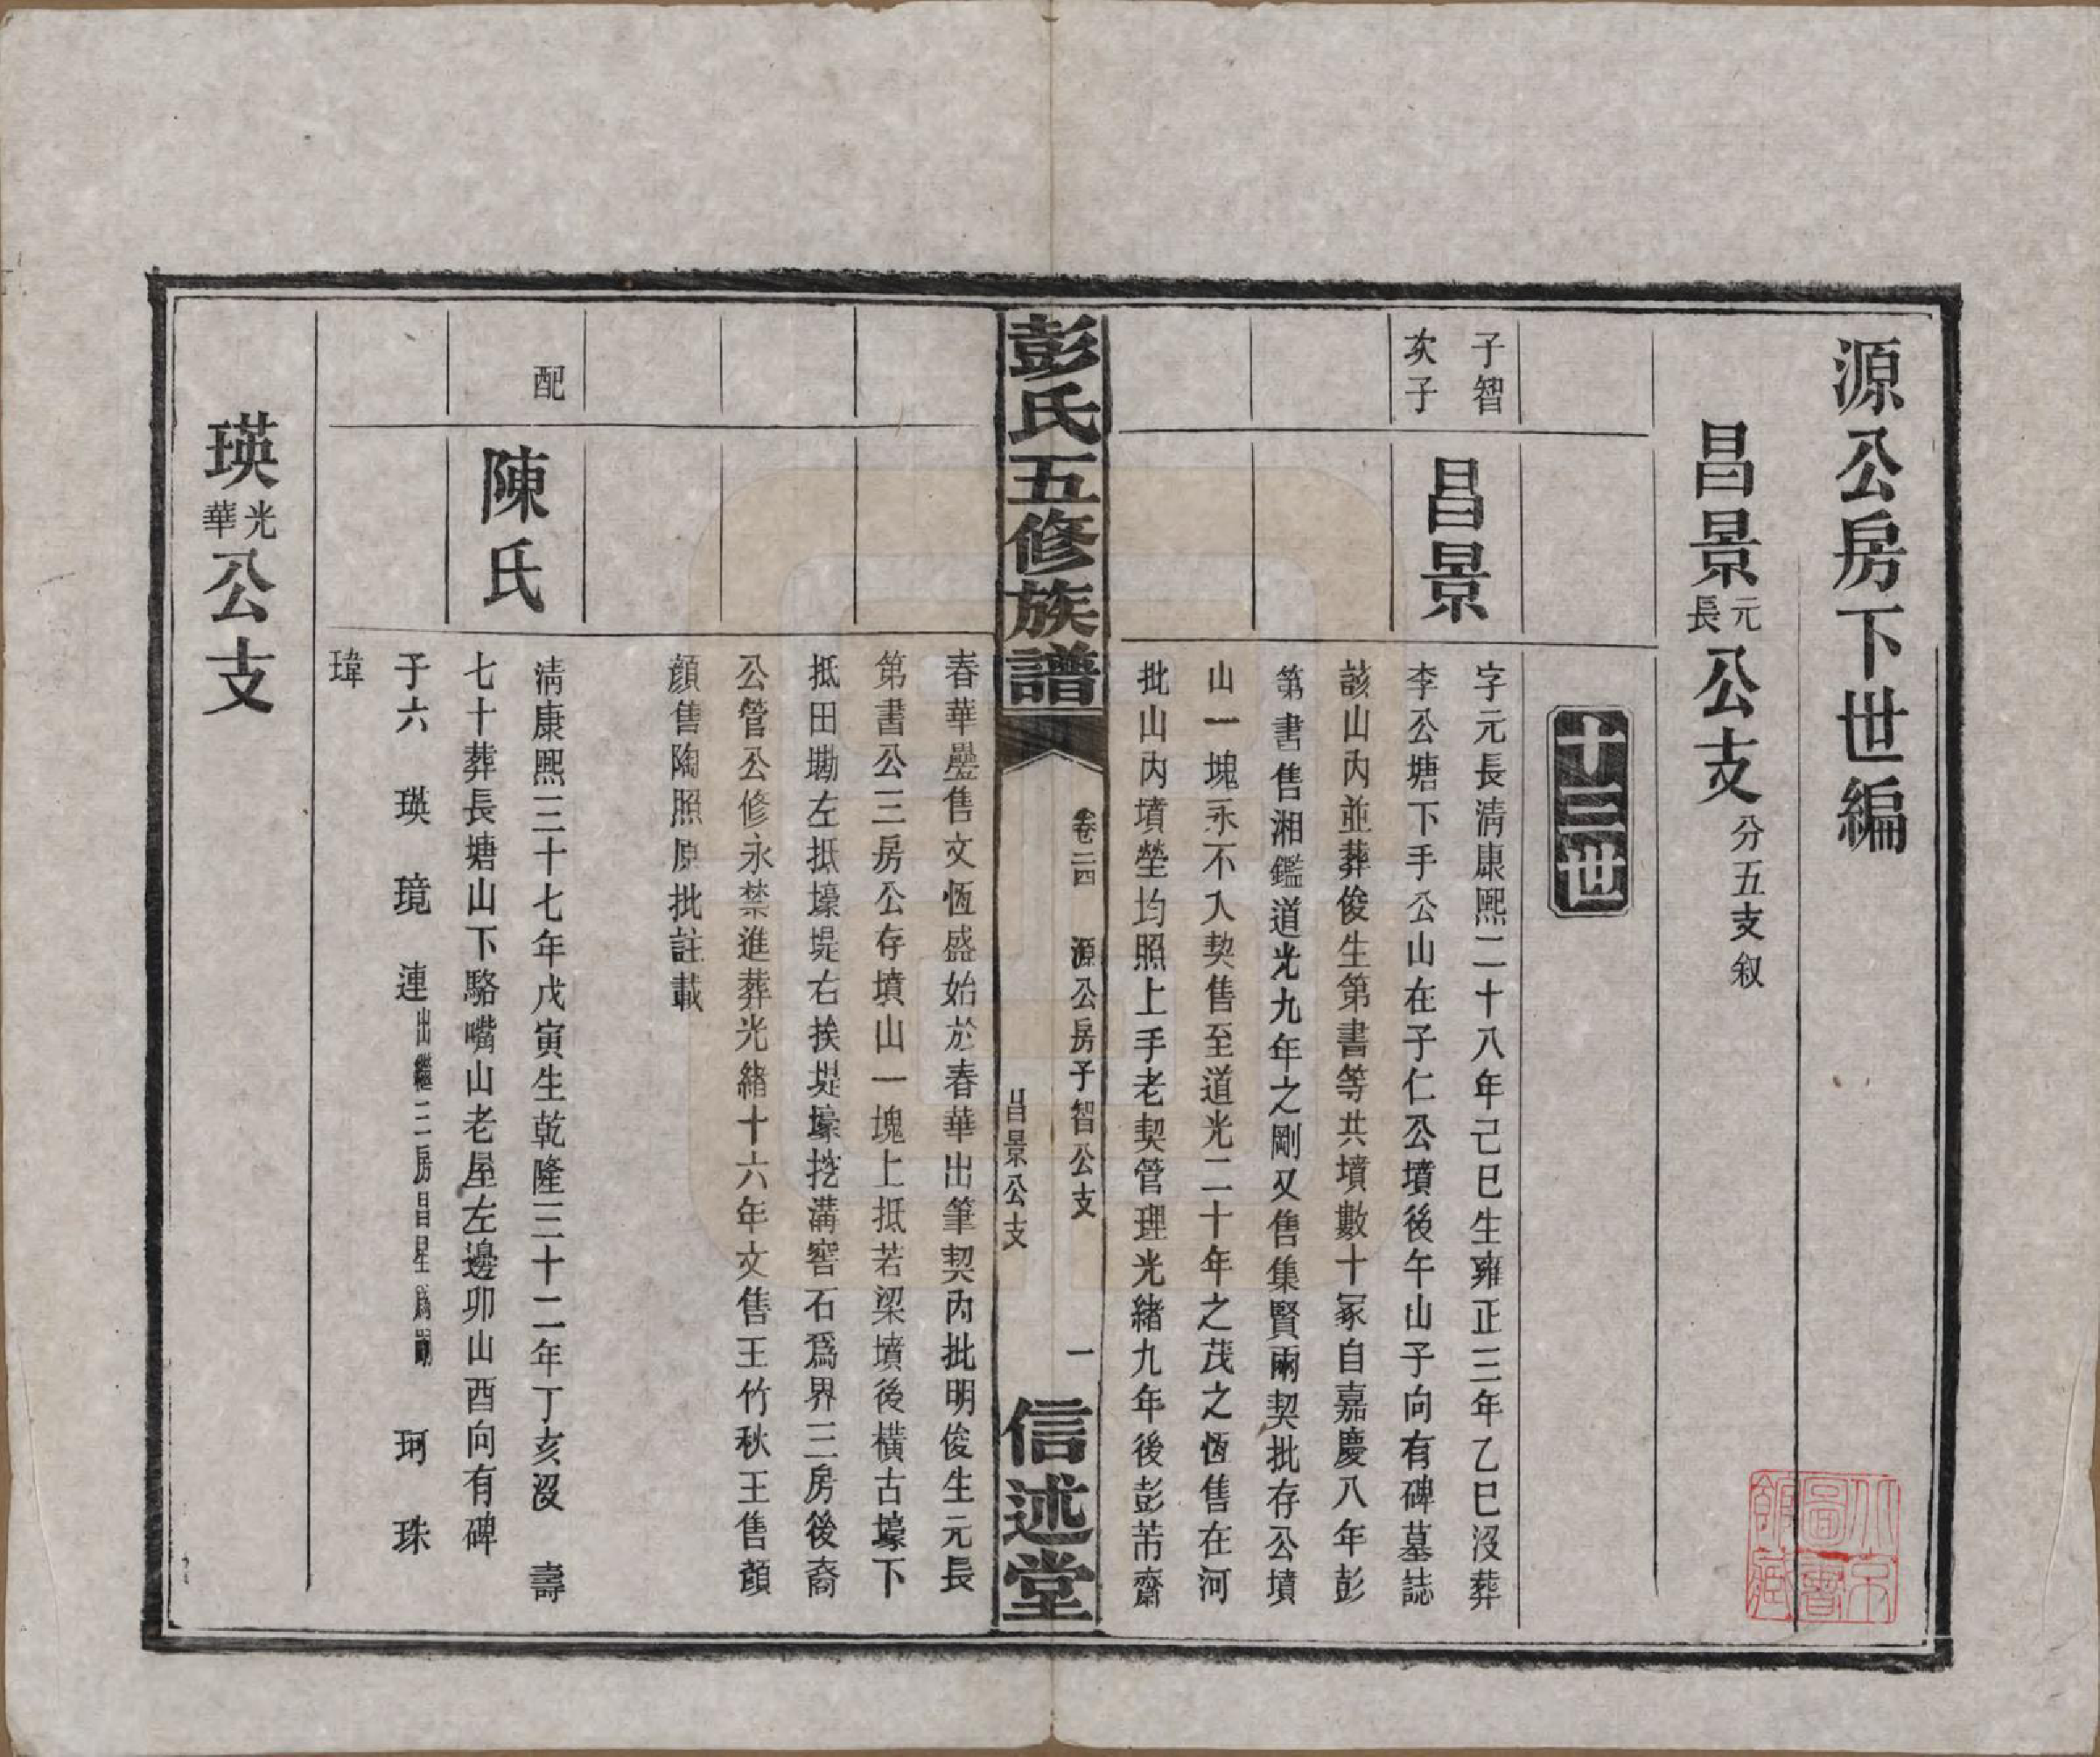 源公房下世編
昌景元長公支分五支叙
十三世
子智
次子
昌景
字元長清康熙二十八年己巳生雍正三年乙巳沒葬
李公塘下手公山在子仁公墳後午山子向有碑墓誌
該山內並葬俊生第書等共墳數十冢自嘉慶八年彭
第書售湘鑑道光九年之剛又售集賢兩契批存公墳
山一塊永不入契售至道光二十年之茂之恆售在河
批山內墳塋均照上手老契管理光緒九年後彭芾齋
彭氏五修族譜
卷二四
源公房子智公支
昌景公支
一
信述堂
春華疊售文恆盛始於春華出筆契內批明俊生元長
第書公三房公存墳山一塊上抵若梁墳後橫古壕下
抵田墈左抵壕堤右挨堤壕挖溝窖石爲界三房後裔
公管公修永禁進葬光緒十六年文售王竹秋王售顏
顏售陶照原批註載
配
陳氏
清康熙三十七年戊寅生乾隆三十二年丁亥沒 壽
七十葬長塘山下駱嘴山老屋左邊卯山酉向有碑
子六 瑛 璄 連出繼三房昌星爲嗣 珂 珠
瑋
瑛光華公支
北京圖書館藏